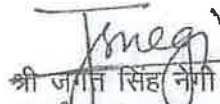 श्री जगत सिंह नेगी